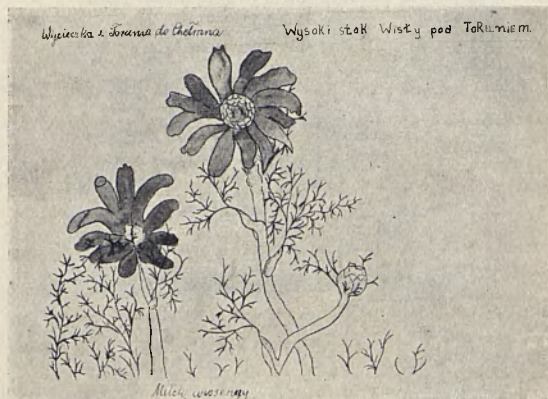 Wycieczka z Torunia do Chełmna
Wysoki stok Wisły pod ToRuniem.
Miłek wiosenny